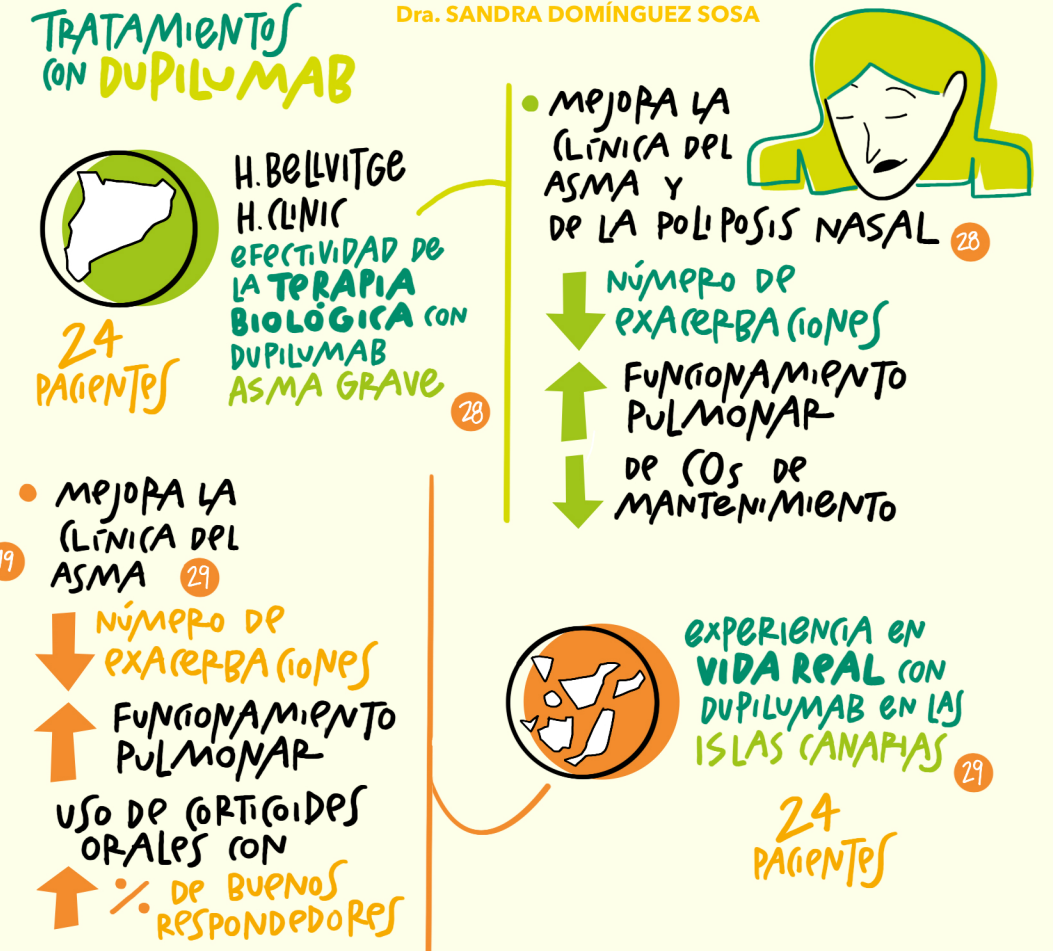 Dra. SANDRA DOMÍNGUEZ SOSA
TRATAMIENTOS
CON DUPILUMAB
H. BELLVITGE
H. CLINIC
EFECTIVIDAD DE
LA TERAPIA
BIOLÓGICA CON
DUPILUMAB
ASMA GRAVE
28
24
PACIENTES
MEJORA LA
CLÍNICA DEL
ASMA Y
DE LA POLIPOSIS NASAL
28
NÚMERO DE
EXACERBACIONES
FUNCIONAMIENTO
PULMONAR
DE COs DE
MANTENIMIENTO
MEJORA LA
CLÍNICA DEL
ASMA 29
NÚMERO DE
EXACERBACIONES
FUNCIONAMIENTO
PULMONAR
USO DE CORTICOIDES
ORALES CON
% DE BUENOS
RESPONDEDORES
EXPERIENCIA EN
VIDA REAL CON
DUPILUMAB EN LAS
ISLAS CANARIAS
29
24
PACIENTES